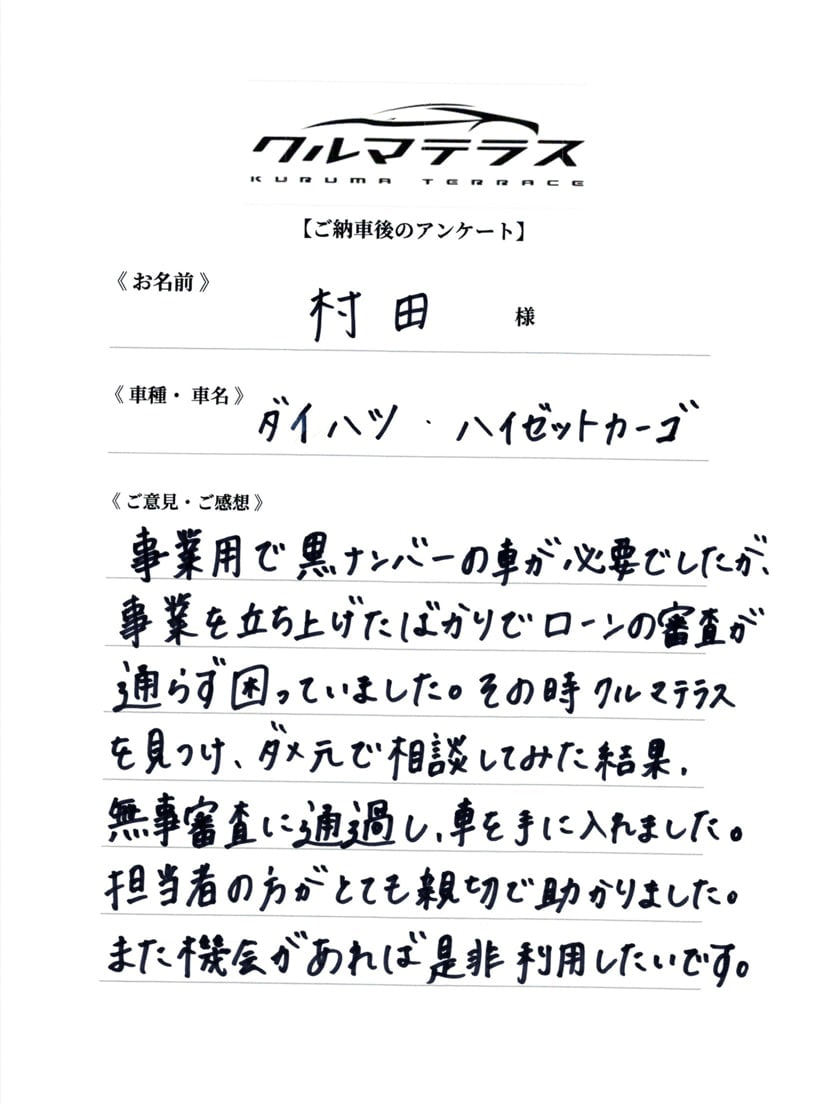 クルマテラス
KURUMA TERRACE
【ご納車後のアンケート】
《 お名前 》
村田 様
《 車種・ 車名 》
ダイハツ ・ ハイゼットカーゴ
《 ご意見・ご感想 》
事業用で黒ナンバーの車が必要でしたが、
事業を立ち上げたばかりでローンの審査が
通らず困っていました。その時クルマテラス
を見つけ、ダメ元で相談してみた結果、
無事審査に通過し、車を手に入れました。
担当者の方がとても親切で助かりました。
また機会があれば是非利用したいです。